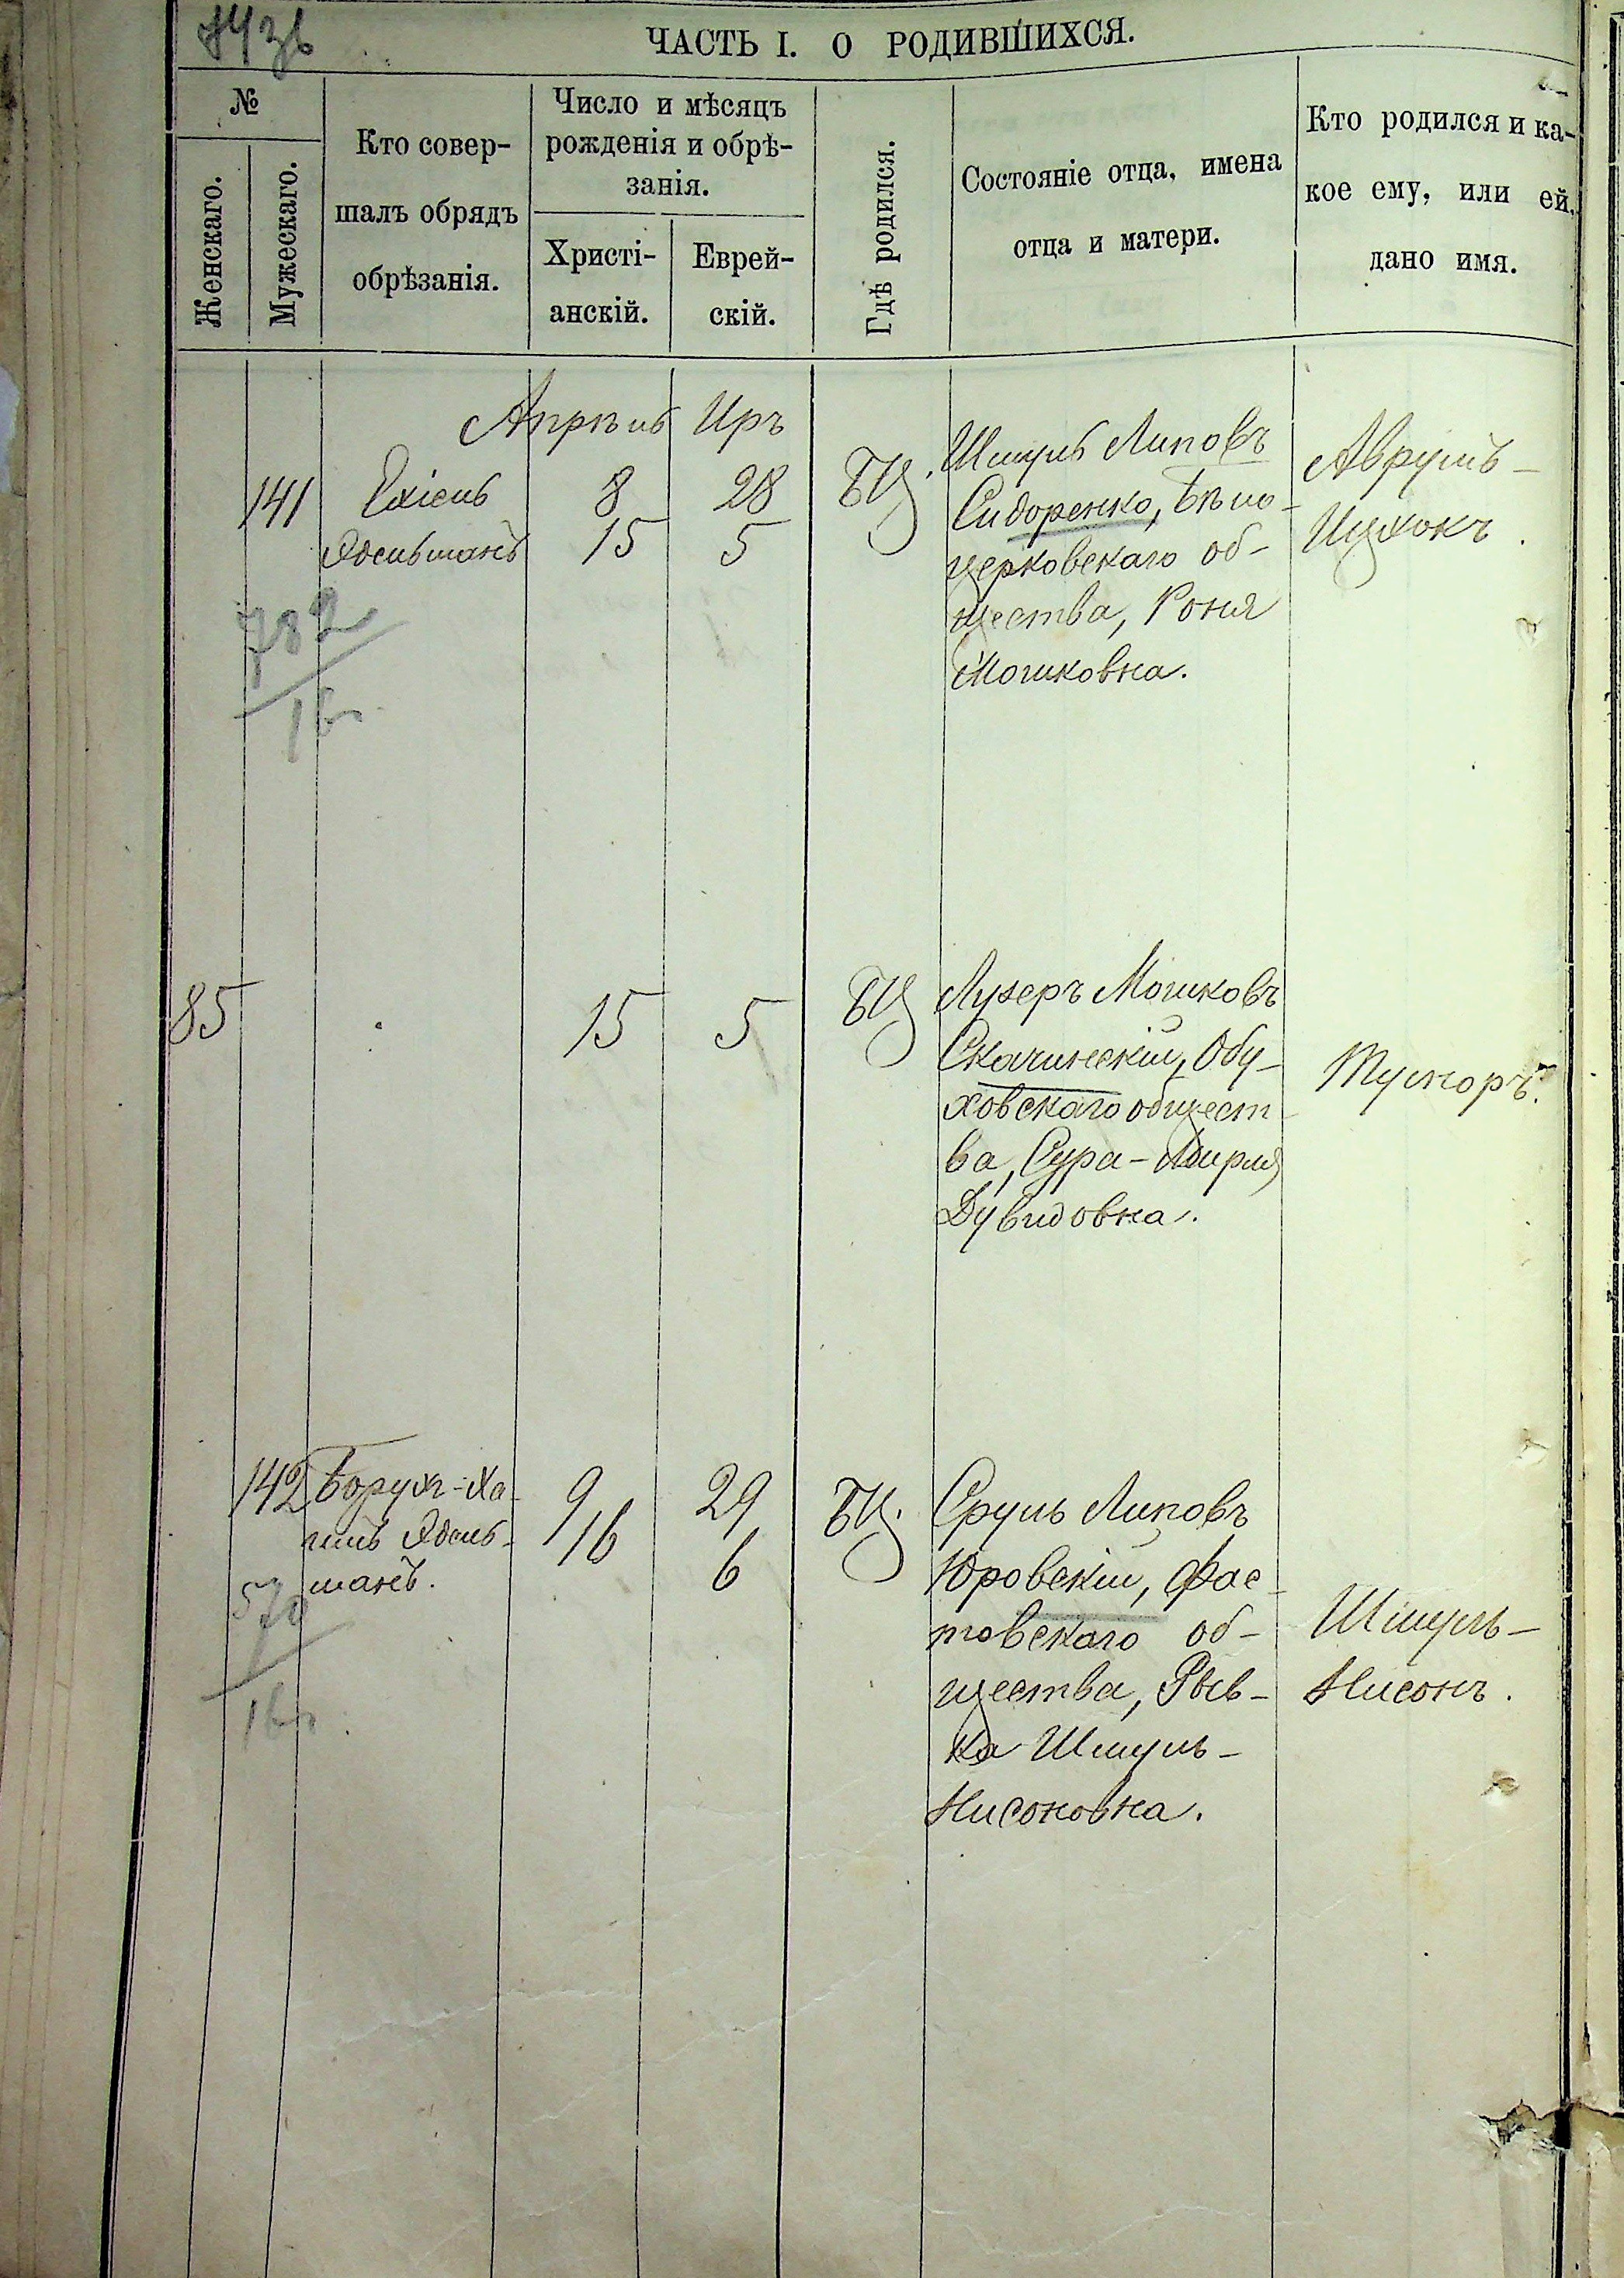 ЧАСТЬ I. О РОДИВШИХСЯ.
№
Женскаго.
Мужескаго.
Кто совер-
шалъ обрядъ
обрѣзанія.
Число и мѣсяцъ
рожденія и обрѣ-
занія.
Христі-
анскій.
Еврей-
скій.
Гдѣ родился.
Состояніе отца, имена
отца и матери.
Кто родился и ка-
кое ему, или ей,
дано имя.
Апрѣль Иръ
141
Ехіель
Эдельманъ
8
15
28
5
БЦ.
Шмуль Липовъ
Сидоренко, Бѣло-
церковскаго об-
щества, Роня
Мошковна.
Аврумъ-
Ицхокъ.
782
16
85
15
5
БЦ
Лузеръ Мошковъ
Скачинскій, Обу-
ховскаго общест-
ва, Сура-Мирля
Дувидовна.
142
Борухъ-Ха-
имъ Эдель-
манъ.
9
16
29
6
БЦ.
Сруль Липовъ
Юровскій, Фас-
товскаго об-
щества, Рыв-
ка Шмуль-
Нисоновна.
Шмуль-
Нисонъ.
570
16